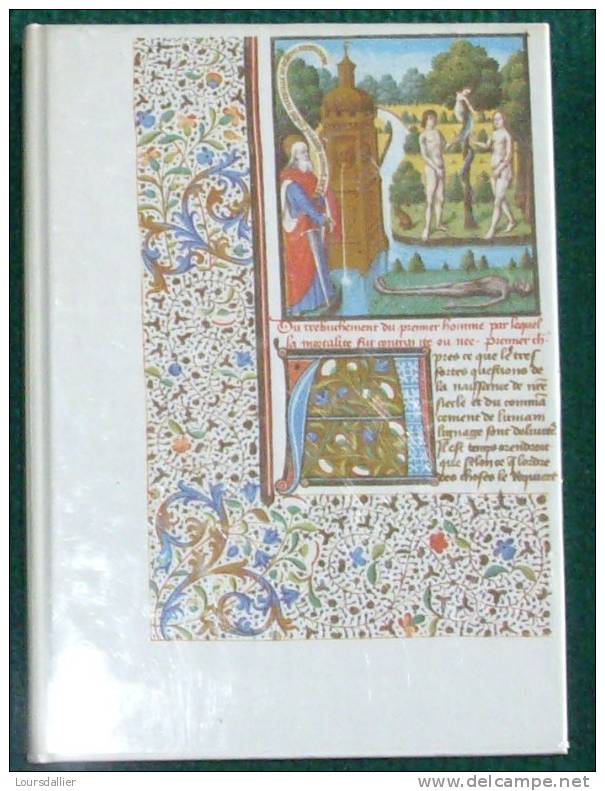 Du trebuchement du premier homme par lequel
la mortalite fut contraite ou nee. Premier ch.
Apres ce que les tres
fortes questions de
la naissance de nre
siecle et du comma
cement de lumain
lignage sont delivre
Il est temps orendroit
que selonce q lordre
des choses le requiert
Loursdallier
delcampe.net